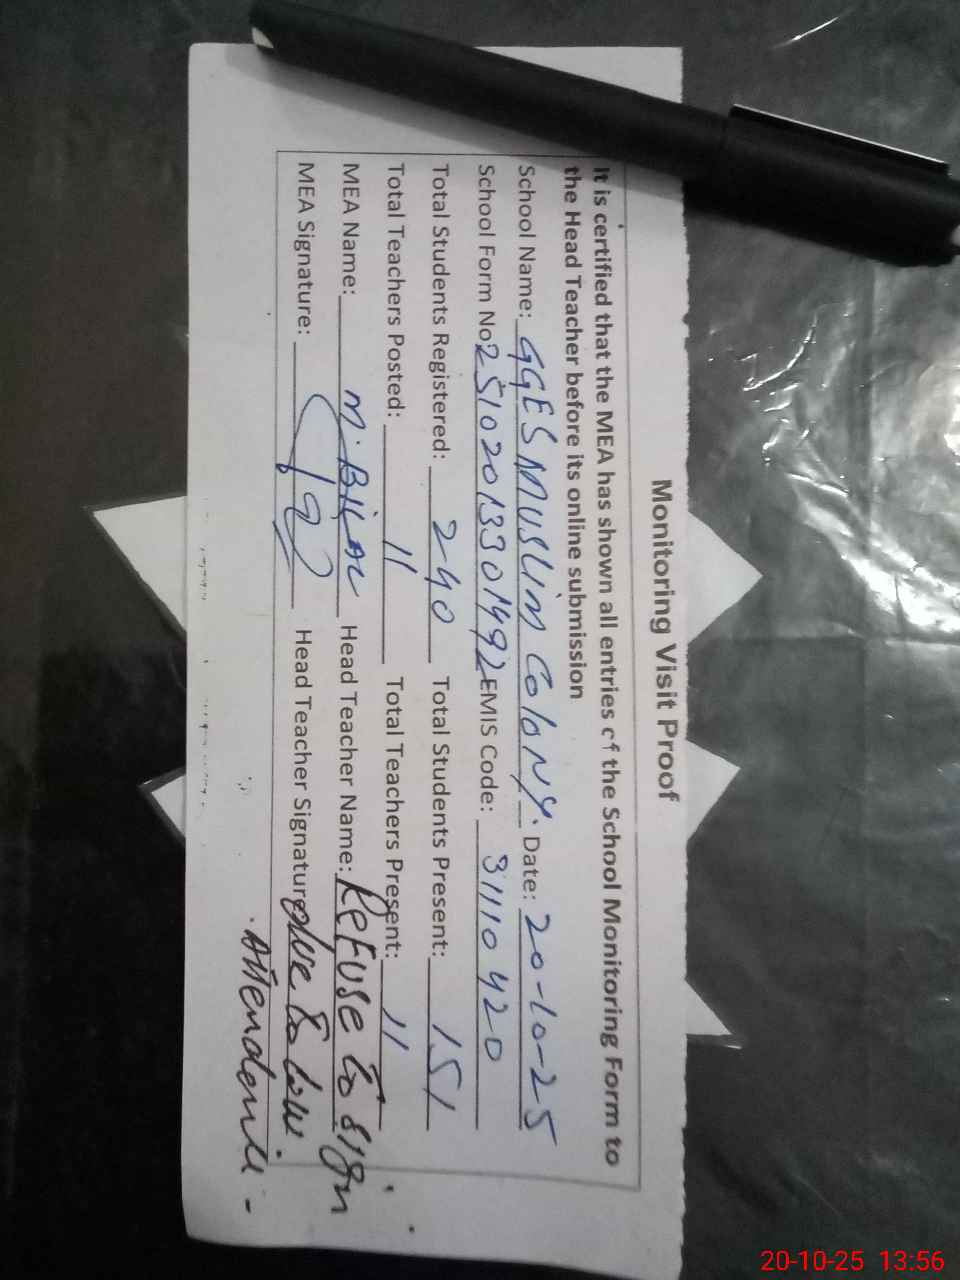 Monitoring Visit Proof
It is certified that the MEA has shown all entries of the School Monitoring Form to
the Head Teacher before its online submission
School Name: GGES MUSLIM COLONY. Date: 20-10-25
School Form No 25102013301492 EMIS Code: 31110420
Total Students Registered: 240 Total Students Present: 151
Total Teachers Posted: 11 Total Teachers Present: 11
MEA Name: M. BILAL Head Teacher Name: Refuse to sign
MEA Signature: Head Teacher Signature due to low.
Attendence -
20-10-25 13:56